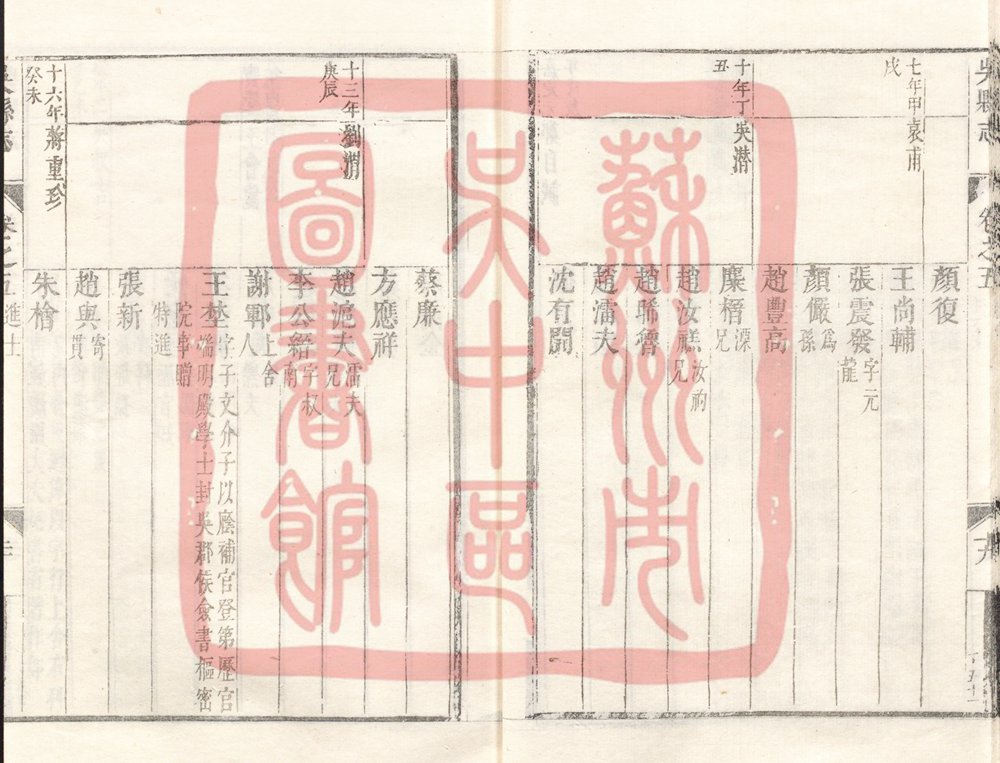 吳縣志
卷之五
七年甲戌
袁甫
顏復
王尚輔
張震發 字元龍
顏儼 為孫
趙豐高
十年丁丑
吳潛
麋榗 溧兄
趙汝禚 汝𥙿兄
趙晞𥛚
趙濡夫
沈有開
十三年庚辰
劉渭
蔡廉
方應祥
趙滬夫 濡夫兄
李公紹 字叔南
謝鄆 上舍人
王埜 字子文介子以廕補官登第歷官端明殿學士封吳郡侯僉書樞密院事贈特進
張新
趙與 寄貫
十六年癸未
蔣重珍
朱檜 進士
蘇州市吳中區圖書館